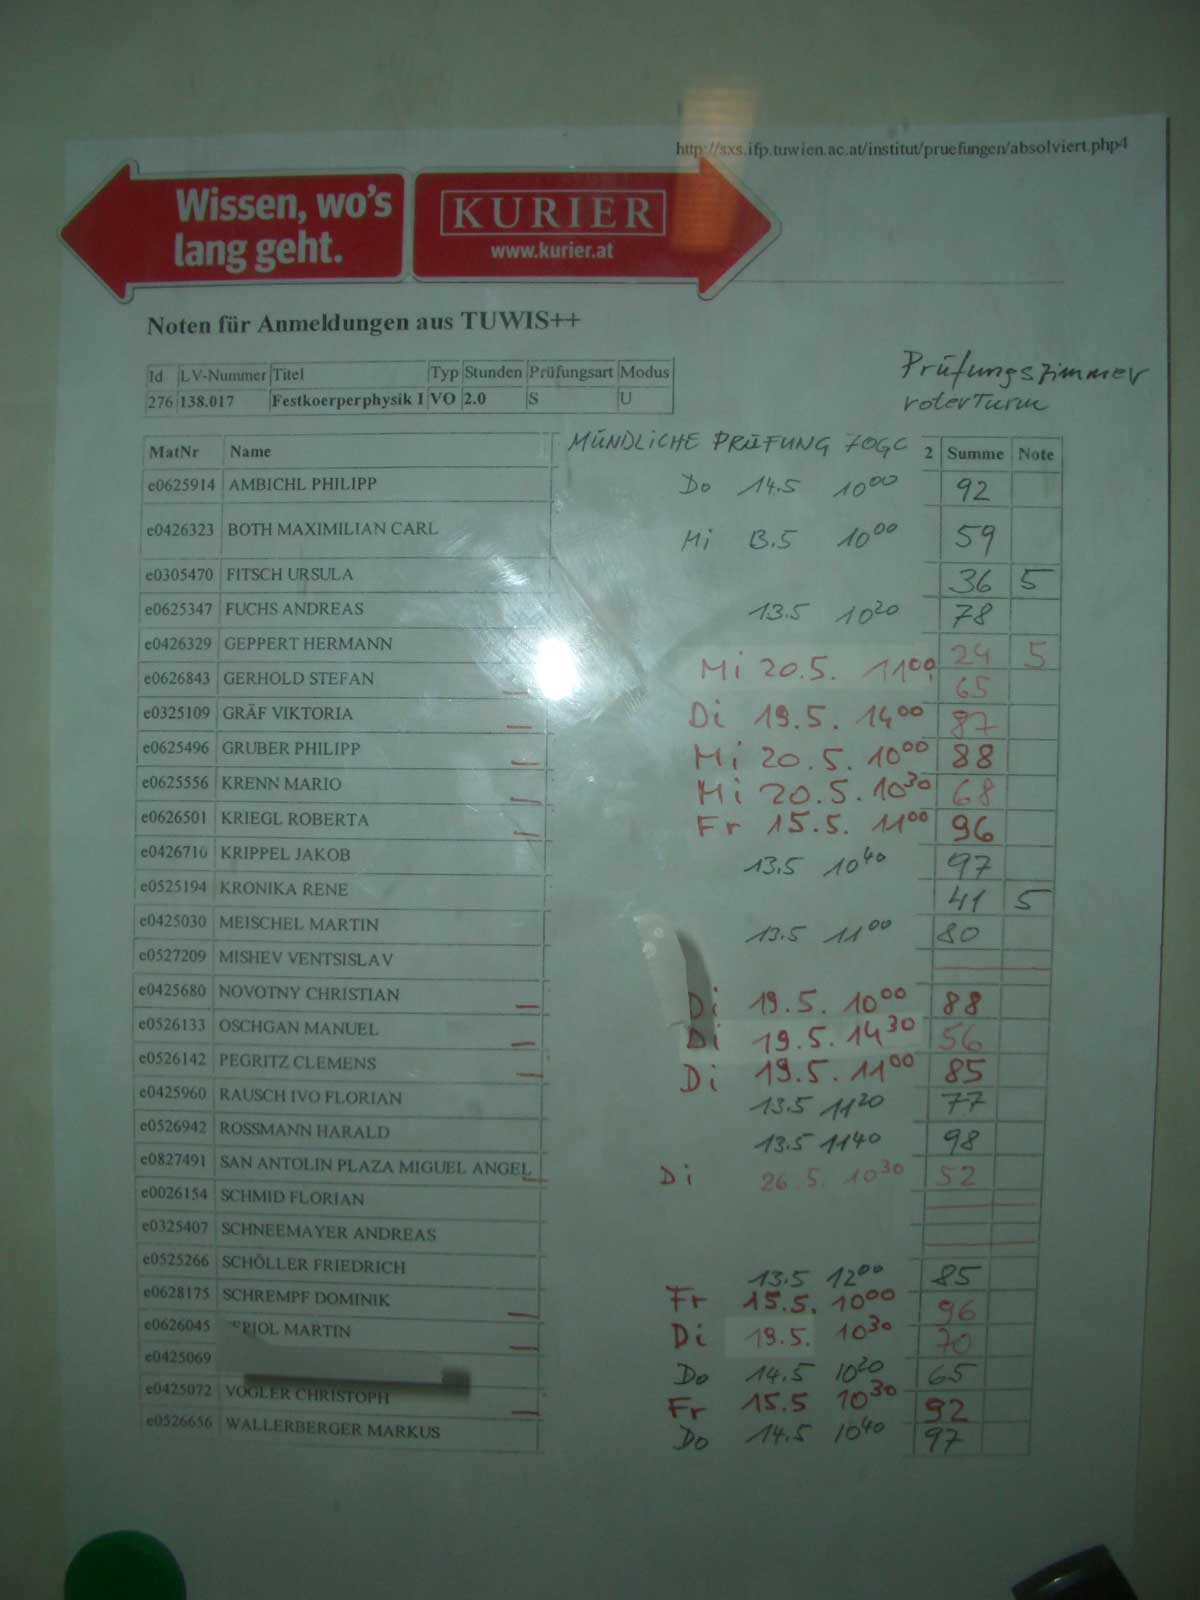 http://sxs.ifp.tuwien.ac.at/institut/pruefungen/absolviert.php4
Wissen, wo's
lang geht.
KURIER
www.kurier.at
Noten für Anmeldungen aus TUWIS++
Id LV-Nummer Titel Typ Stunden Prüfungsart Modus
276 138.017 Festkoerperphysik I VO 2.0 S U
Prüfungszimmer
roter Turm
MatNr Name MÜNDLICHE PRÜFUNG 2 Summe Note
e0625914 AMBICHL PHILIPP Do 14.5 10⁰⁰ 92
e0426323 BOTH MAXIMILIAN CARL Mi 13.5 10⁰⁰ 59
e0305470 FITSCH URSULA 36 5
e0625347 FUCHS ANDREAS 13.5 10²⁰ 78
e0426329 GEPPERT HERMANN 24 5
e0626843 GERHOLD STEFAN Mi 20.5. 11⁰⁰ 65
e0325109 GRÄF VIKTORIA Di 19.5. 14⁰⁰ 87
e0625496 GRUBER PHILIPP Mi 20.5. 10⁰⁰ 88
e0625556 KRENN MARIO Mi 20.5. 10³⁰ 68
e0626501 KRIEGL ROBERTA Fr 15.5. 11⁰⁰ 96
e0426710 KRIPPEL JAKOB 13.5 10⁴⁰ 97
e0525194 KRONIKA RENE 41 5
e0425030 MEISCHEL MARTIN 13.5 11⁰⁰ 80
e0527209 MISHEV VENTSISLAV
e0425680 NOVOTNY CHRISTIAN Di 19.5. 10⁰⁰ 88
e0526133 OSCHGAN MANUEL Di 19.5. 14³⁰ 56
e0526142 PEGRITZ CLEMENS Di 19.5. 11⁰⁰ 85
e0425960 RAUSCH IVO FLORIAN 13.5 11²⁰ 77
e0526942 ROSSMANN HARALD 13.5 11⁴⁰ 98
e0827491 SAN ANTOLIN PLAZA MIGUEL ANGEL Di 26.5. 10³⁰ 52
e0026154 SCHMID FLORIAN
e0325407 SCHNEEMAYER ANDREAS
e0525266 SCHÖLLER FRIEDRICH 13.5 12⁰⁰ 85
e0628175 SCHREMPF DOMINIK Fr 15.5. 10⁰⁰ 96
e0626045 MARTIN Di 19.5. 10³⁰ 70
e0425069 Do 14.5 10²⁰ 65
e0425072 VOGLER CHRISTOPH Fr 15.5 10³⁰ 92
e0526656 WALLERBERGER MARKUS Do 14.5 10⁴⁰ 97